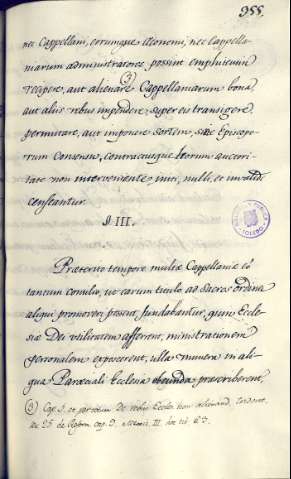 355.
nec Cappellani, eorumque œconomi, nec Cappella-
niarum administratores, possint emphiteuim
recipere, aut alienare Cappellaniarum bona,
(3)
aut aliis rebus impendere, super eis transigere
permutare, aut imponere Sortem, sine Episcopo-
rum Consensu, contractusque horum auctori-
tate non interveniente initi, nulli, et invalidi
censeantur.
§ III.
Præterito tempore multæ Cappellaniæ eo
tantum consilio, ut earum titulo ad Sacros ordines
aliqui promoveri possent, fundabantur, quin Eccle-
siæ Dei utilitatem afferrent, ministrationem
personalem exposcerent, ulla munera in ali-
qua Parœciali Ecclesia obeunda præscriberent,
(3) Cap. 5. et per totum De rebus Eccles. non alienand.
25 de Reform. cap.
TOLEDO